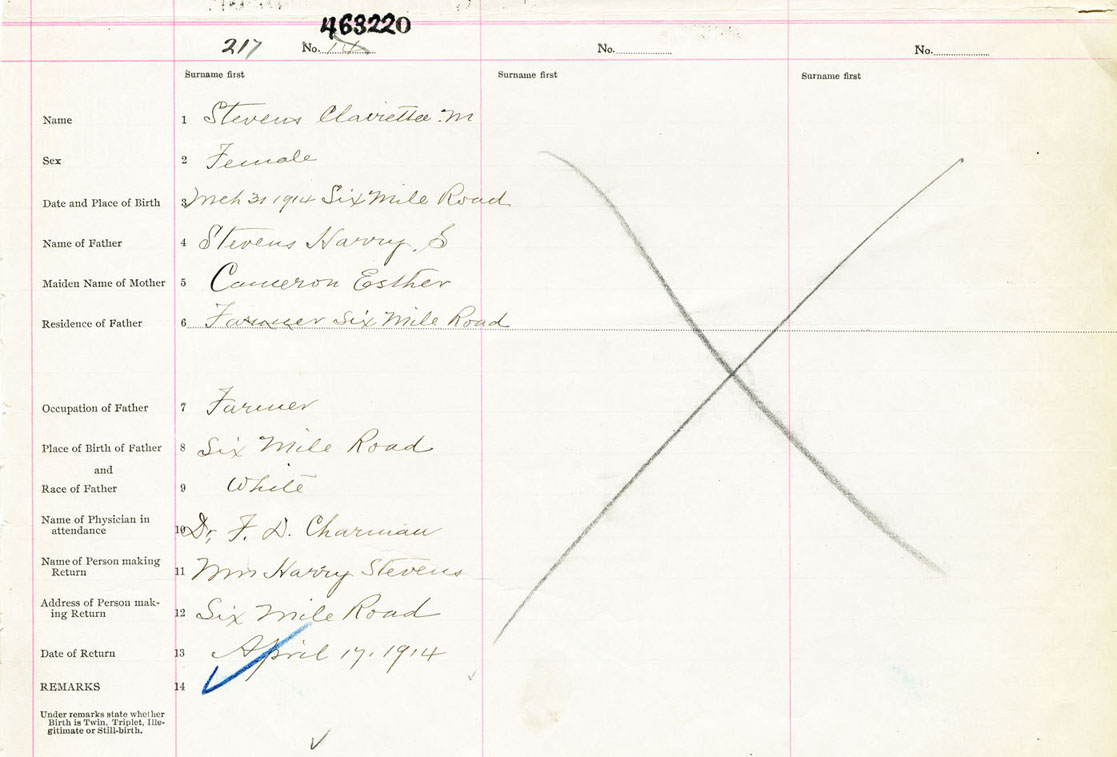 463220
217 No. No. No.
Surname first Surname first Surname first
Name 1 Stevens Clairetta M
Sex 2 Female
Date and Place of Birth 3 Mch 31 1914 Six Mile Road
Name of Father 4 Stevens Harry S
Maiden Name of Mother 5 Cameron Esther
Residence of Father 6 Farmer Six Mile Road
Occupation of Father 7 Farmer
Place of Birth of Father 8 Six Mile Road
and
Race of Father 9 White
Name of Physician in
attendance 10 Dr. F. D. Charman
Name of Person making
Return 11 Mrs Harry Stevens
Address of Person mak-
ing Return 12 Six Mile Road
Date of Return 13 April 17. 1914
REMARKS 14
Under remarks state whether
Birth is Twin, Triplet, Ille-
gitimate or Still-birth.